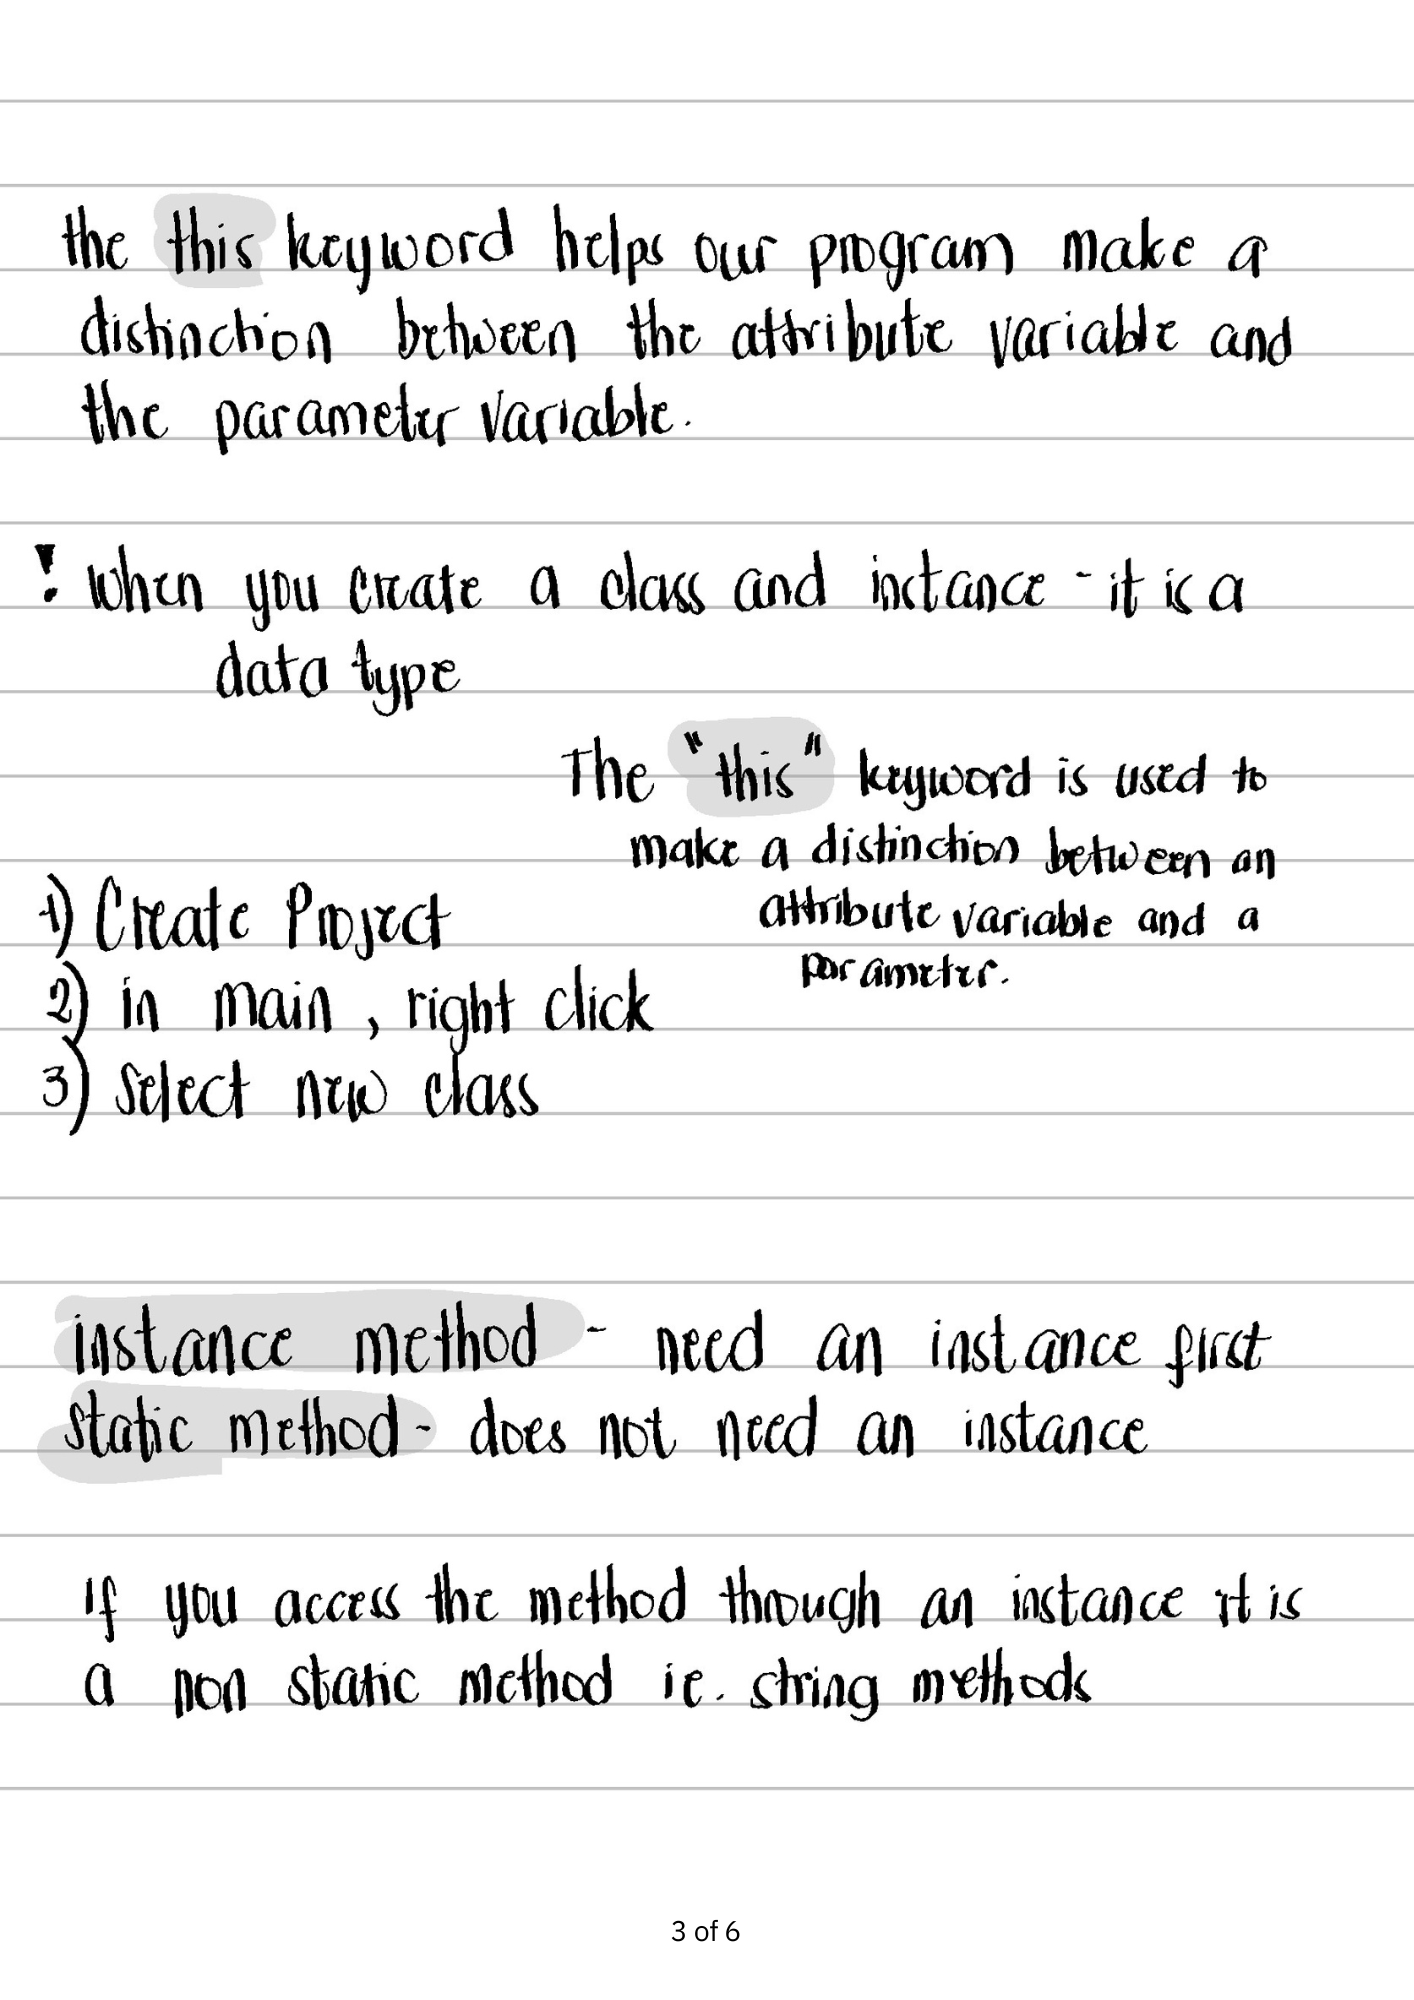 the this keyword helps our program make a
distinction between the attribute variable and
the parameter variable.
! When you create a class and instance - it is a
data type
The "this" keyword is used to
make a distinction between an
attribute variable and a
parameter.
1) Create Project
2) in main, right click
3) Select new class
instance method - need an instance first
static method - does not need an instance
If you access the method through an instance it is
a non static method ie. string methods
3 of 6